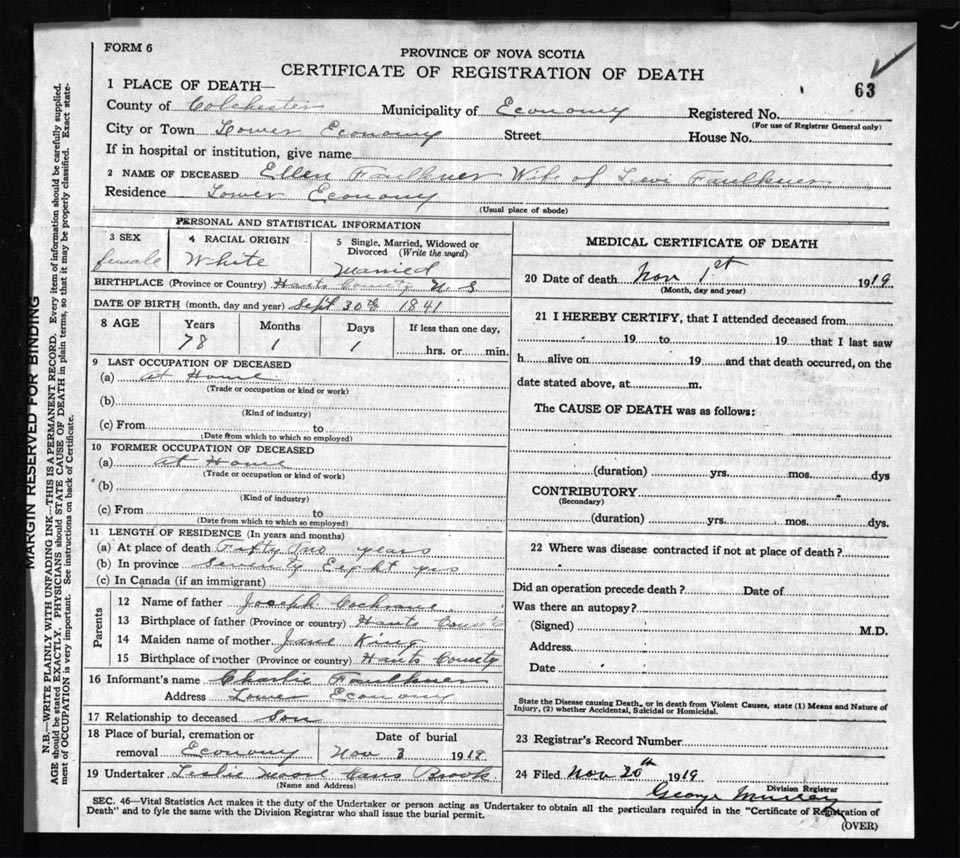 FORM 6
PROVINCE OF NOVA SCOTIA
CERTIFICATE OF REGISTRATION OF DEATH
63
1 PLACE OF DEATH—
County of Colchester Municipality of Economy Registered No.
(For use of Registrar General only)
City or Town Lower Economy Street House No.
If in hospital or institution, give name
2 NAME OF DECEASED Ellen Faulkner Wife of Levi Faulkner
Residence Lower Economy
(Usual place of abode)
PERSONAL AND STATISTICAL INFORMATION
3 SEX 4 RACIAL ORIGIN 5 Single, Married, Widowed or
Divorced (Write the word)
female White Married
BIRTHPLACE (Province or Country) Hants County N.S.
DATE OF BIRTH (month, day and year) Sept 30th 1841
8 AGE Years Months Days If less than one day,
78 1 1 hrs. or min.
9 LAST OCCUPATION OF DECEASED
(a) at Home
(Trade or occupation or kind or work)
(b)
(Kind of industry)
(c) From to
(Date from which to which so employed)
10 FORMER OCCUPATION OF DECEASED
(a) at Home
(Trade or occupation or kind of work)
(b)
(Kind of industry)
(c) From to
(Date from which to which so employed)
11 LENGTH OF RESIDENCE (In years and months)
(a) At place of death Fifty Two years
(b) In province Seventy Eight yrs
(c) In Canada (if an immigrant)
Parents
12 Name of father Joseph Cochrane
13 Birthplace of father (Province or country) Hants County
14 Maiden name of mother Jane King
15 Birthplace of mother (Province or country) Hants County
16 Informant's name Charlie Faulkner
Address Lower Economy
17 Relationship to deceased Son
18 Place of burial, cremation or Date of burial
removal Economy Nov 3 1919
19 Undertaker Leslie Moore Brook
(Name and Address)
MEDICAL CERTIFICATE OF DEATH
20 Date of death Nov 1st 1919
(Month, day and year)
21 I HEREBY CERTIFY, that I attended deceased from
19 to 19 that I last saw
h alive on 19 and that death occurred, on the
date stated above, at m.
The CAUSE OF DEATH was as follows:
(duration) yrs. mos. dys
CONTRIBUTORY
(Secondary)
(duration) yrs. mos. dys.
22 Where was disease contracted if not at place of death?
Did an operation precede death? Date of
Was there an autopsy?
(Signed) M.D.
Address
Date
State the Disease causing Death, or in death from Violent Causes, state (1) Means and Nature of
Injury, (2) whether Accidental, Suicidal or Homicidal.
23 Registrar's Record Number
24 Filed Nov 20th 1919
Division Registrar
George Murray
SEC. 46—Vital Statistics Act makes it the duty of the Undertaker or person acting as Undertaker to obtain all the particulars required in the "Certificate of Registration of
Death" and to fyle the same with the Division Registrar who shall issue the burial permit.
(OVER)
MARGIN RESERVED FOR BINDING
N.B.—WRITE PLAINLY WITH UNFADING INK—THIS IS A PERMANENT RECORD. Every item of information should be carefully supplied.
AGE should be stated EXACTLY. PHYSICIANS should STATE CAUSE OF DEATH in plain terms, so that it may be properly classified. Exact state-
ment of OCCUPATION is very important. See instructions on back of Certificate.